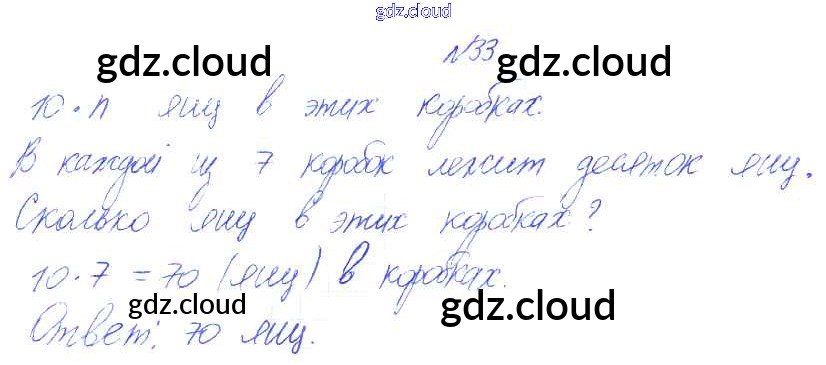 gdz.cloud
№33
gdz.cloud gdz.cloud
10・n яиц в этих коробках.
В каждой из 7 коробок лежит десяток яиц.
Сколько яиц в этих коробках?
10・7 = 70 (яиц) в коробках.
gdz.cloud gdz.cloud
Ответ: 70 яиц.